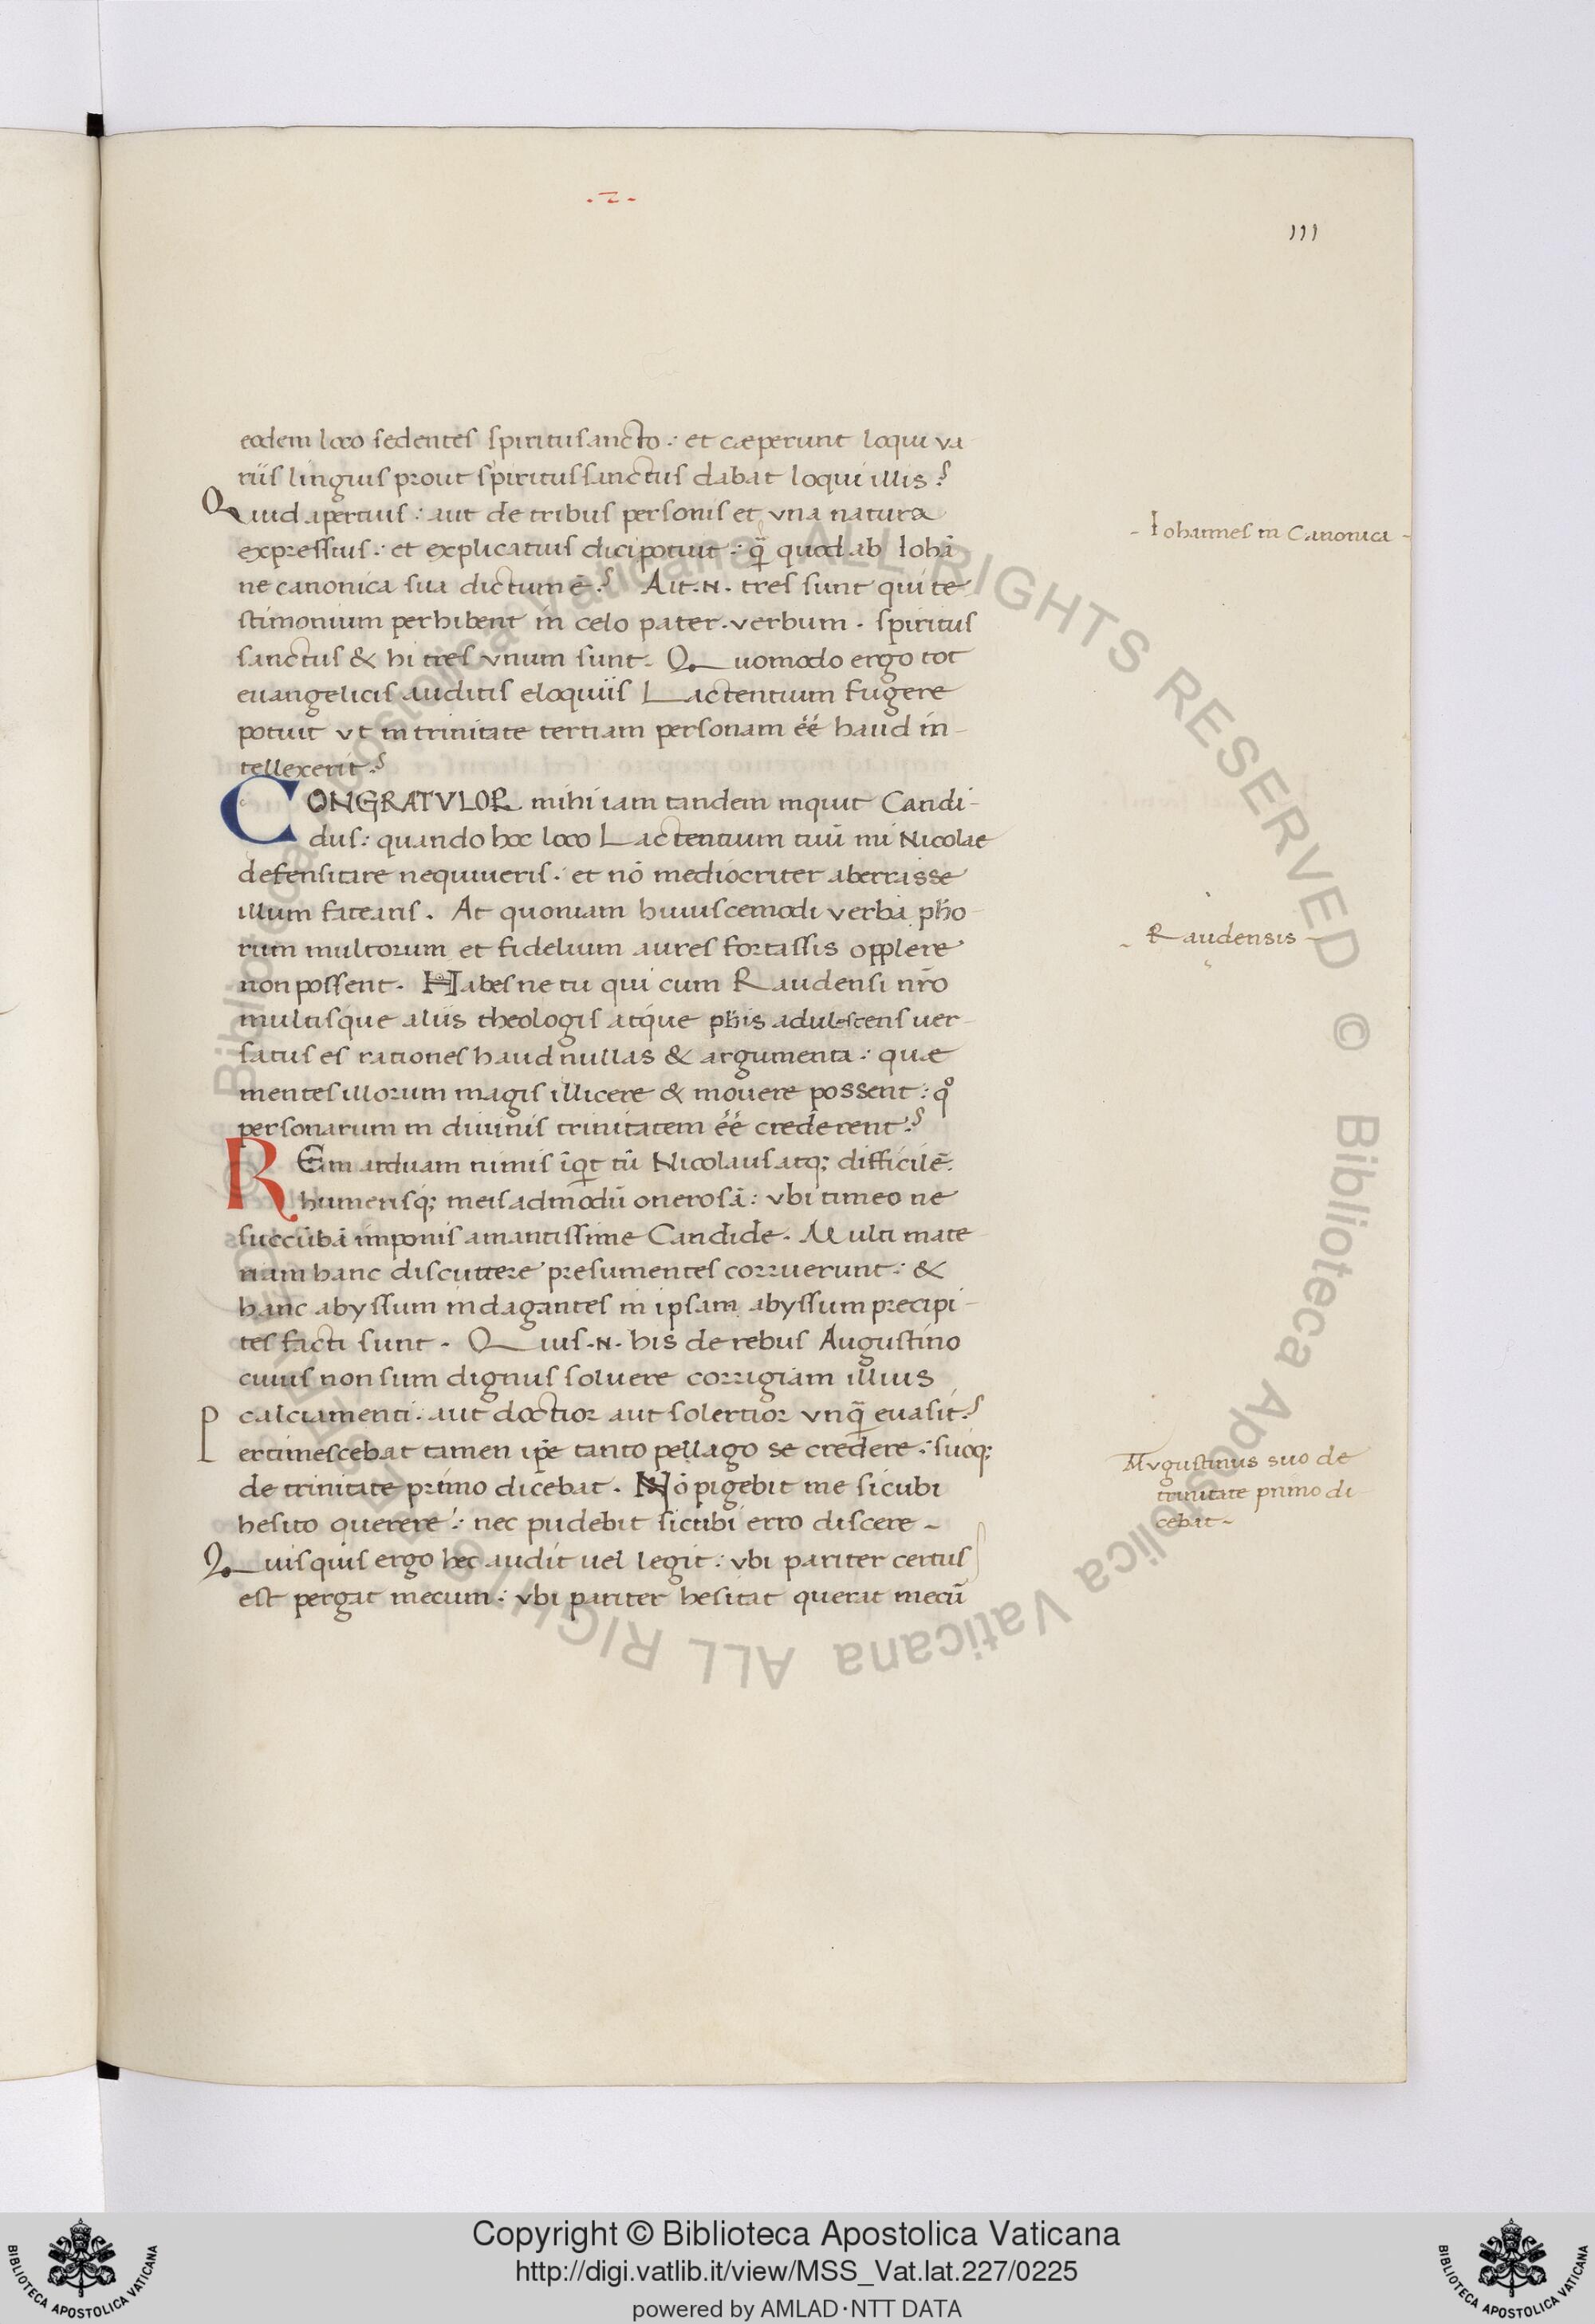 .2.
111
eodem loco sedentes spiritusancto: et cæperunt loqui va
riis linguis prout spiritussanctus dabat loqui illis?
Quid apertius: aut de tribus personis et vna natura
expressius: et explicatius dici potuit: q̄ quod ab Iohā
ne canonica sua dictum ē? Ait .N. tres sunt qui te
stimonium perhibent in celo pater. verbum. spiritus
sanctus & hi tres vnum sunt. Quomodo ergo tot
euangelicis auditis eloquiis Lactentium fugere
potuit vt in trinitate tertiam personam éé haud in-
tellexerit?
CONGRATVLOR mihi iam tandem inquit Candi-
dus: quando hoc loco Lactentium tuū mi Nicolae
defensitare nequiueris: et nō mediocriter aberrasse
illum fatearis. At quoniam huiuscemodi verba pho
rum multorum et fidelium aures fortassis opplere
non possent. Habes ne tu qui cum Raudensi nr̄o
multisque aliis theologis atque phis adulescens uer-
satus es rationes haud nullas & argumenta: quæ
mentes illorum magis illicere & mouere possent: qͦ
personarum in diuinis trinitatem éé crederent?
REm arduam nimis īqt tū Nicolaus atq; difficilē.
humerisq; meis admodū onerosā: vbi timeo ne
succūbā imponis amantissime Candide. Multi mate
riam hanc discuttere presumentes corruerunt: &
hanc abyssum indagantes in ipsam abyssum precipi-
tes facti sunt. Quis .N. his de rebus Augustino
cuius non sum dignus soluere corrigiam illius
calciamenti: aut doctior aut solertior vnq̄ euasit?
Pertimescebat tamen ip̄e tanto pellago se credere: suoq;
de trinitate primo dicebat. Nō pigebit me sicubi
hesito querere: nec pudebit sicubi erro discere-
Quisquis ergo hec audit uel legit: vbi pariter certus
est pergat mecum: vbi pariter hesitat querat mecū
- Iohannes in Canonica -
- Raudensis -
Avgustinus suo de
trinitate primo di
cebat-
Biblioteca Apostolica Vaticana ALL RIGHTS RESERVED © Biblioteca Apostolica Vaticana ALL RIGHTS RESERVED ©
Copyright © Biblioteca Apostolica Vaticana
http://digi.vatlib.it/view/MSS_Vat.lat.227/0225
powered by AMLAD·NTT DATA
BIBLIOTECA APOSTOLICA VATICANA
BIBLIOTECA APOSTOLICA VATICANA